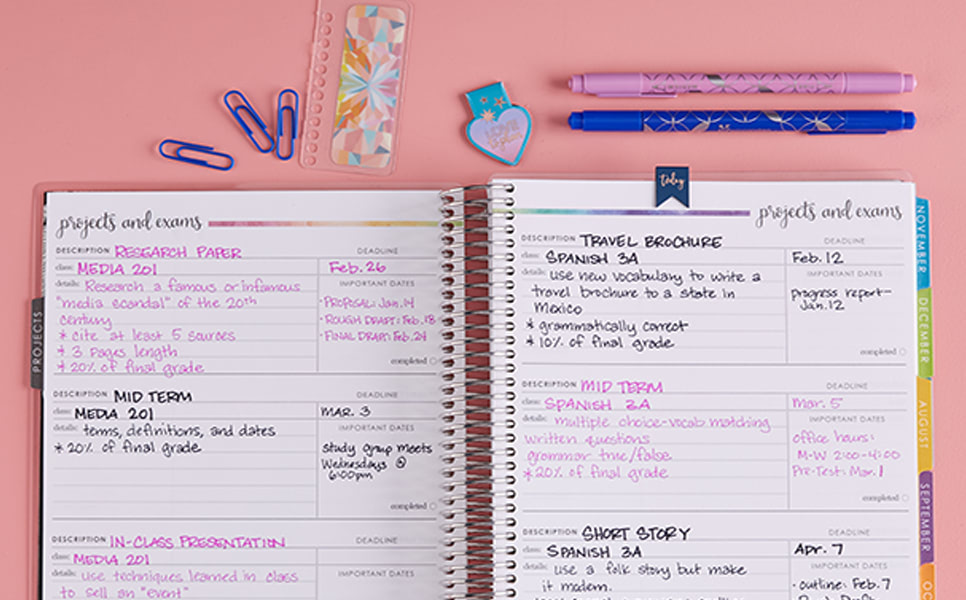 today
projects and exams
DESCRIPTION RESEARCH PAPER DEADLINE
class: MEDIA 201 Feb. 26
details: Research a famous or infamous IMPORTANT DATES
"media scandal" of the 20th ·PROPOSAL: Jan. 14
century ·ROUGH DRAFT: Feb. 18
* cite at least 5 sources ·FINAL DRAFT: Feb. 24
* 3 pages length
* 20% of final grade completed
DESCRIPTION MID TERM DEADLINE
class: MEDIA 201 MAR. 3
details: terms, definitions, and dates IMPORTANT DATES
* 20% of final grade study group meets
Wednesdays @
6:00pm
completed
DESCRIPTION IN-CLASS PRESENTATION DEADLINE
class: MEDIA 201
details: use techniques learned in class IMPORTANT DATES
to sell an "event"
PROJECTS
projects and exams
DESCRIPTION TRAVEL BROCHURE DEADLINE
class: SPANISH 3A Feb. 12
details: use new vocabulary to write a IMPORTANT DATES
travel brochure to a state in progress report-
Mexico Jan. 12
* grammatically correct
* 10% of final grade completed
DESCRIPTION MID TERM DEADLINE
class: SPANISH 3A Mar. 5
details: multiple choice-vocab matching IMPORTANT DATES
written questions office hours:
grammar true/false M-W 2:00-4:00
* 20% of final grade Pre-Test: Mar. 1
completed
DESCRIPTION SHORT STORY DEADLINE
class: SPANISH 3A Apr. 7
details: use a folk story but make IMPORTANT DATES
it modern. ·outline: Feb. 7
NOVEMBER
DECEMBER
AUGUST
SEPTEMBER
OC